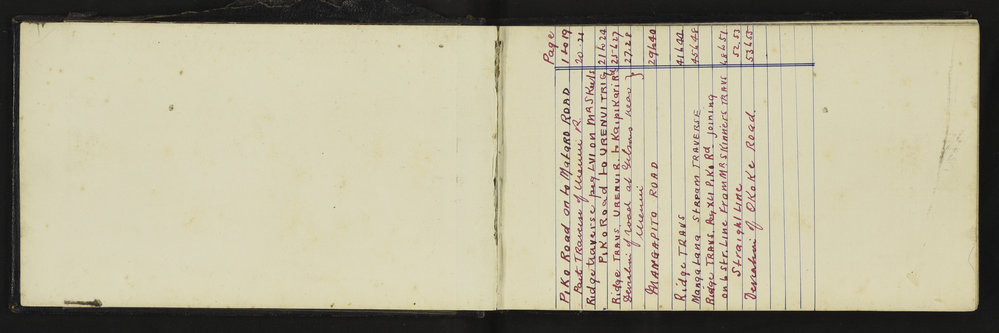 Page
Piko Road on to Mataro Road 1 to 19
Part Traverse of Urenui R 20-21
Ridge traverse peg LVI on Mr Skeets
Piko Road to URENUI TRIG 21 to 24
Ridge TRAVS URENUI R to Kaipikari Rd 25 to 27
of road at near } 27-28
Urenui
MANGAPITO ROAD 29 to 40
Ridge TRAVS 41 to 44
Mangalana STREAM TRAVERSE 45 to 48
Ridge TRAVS. Peg XLI Piko Rd joining
on to Str. Line From MR SKinners TRAVS 48 to 51
Straight Line 52, 53
of OKoKe Road. 53 to 55